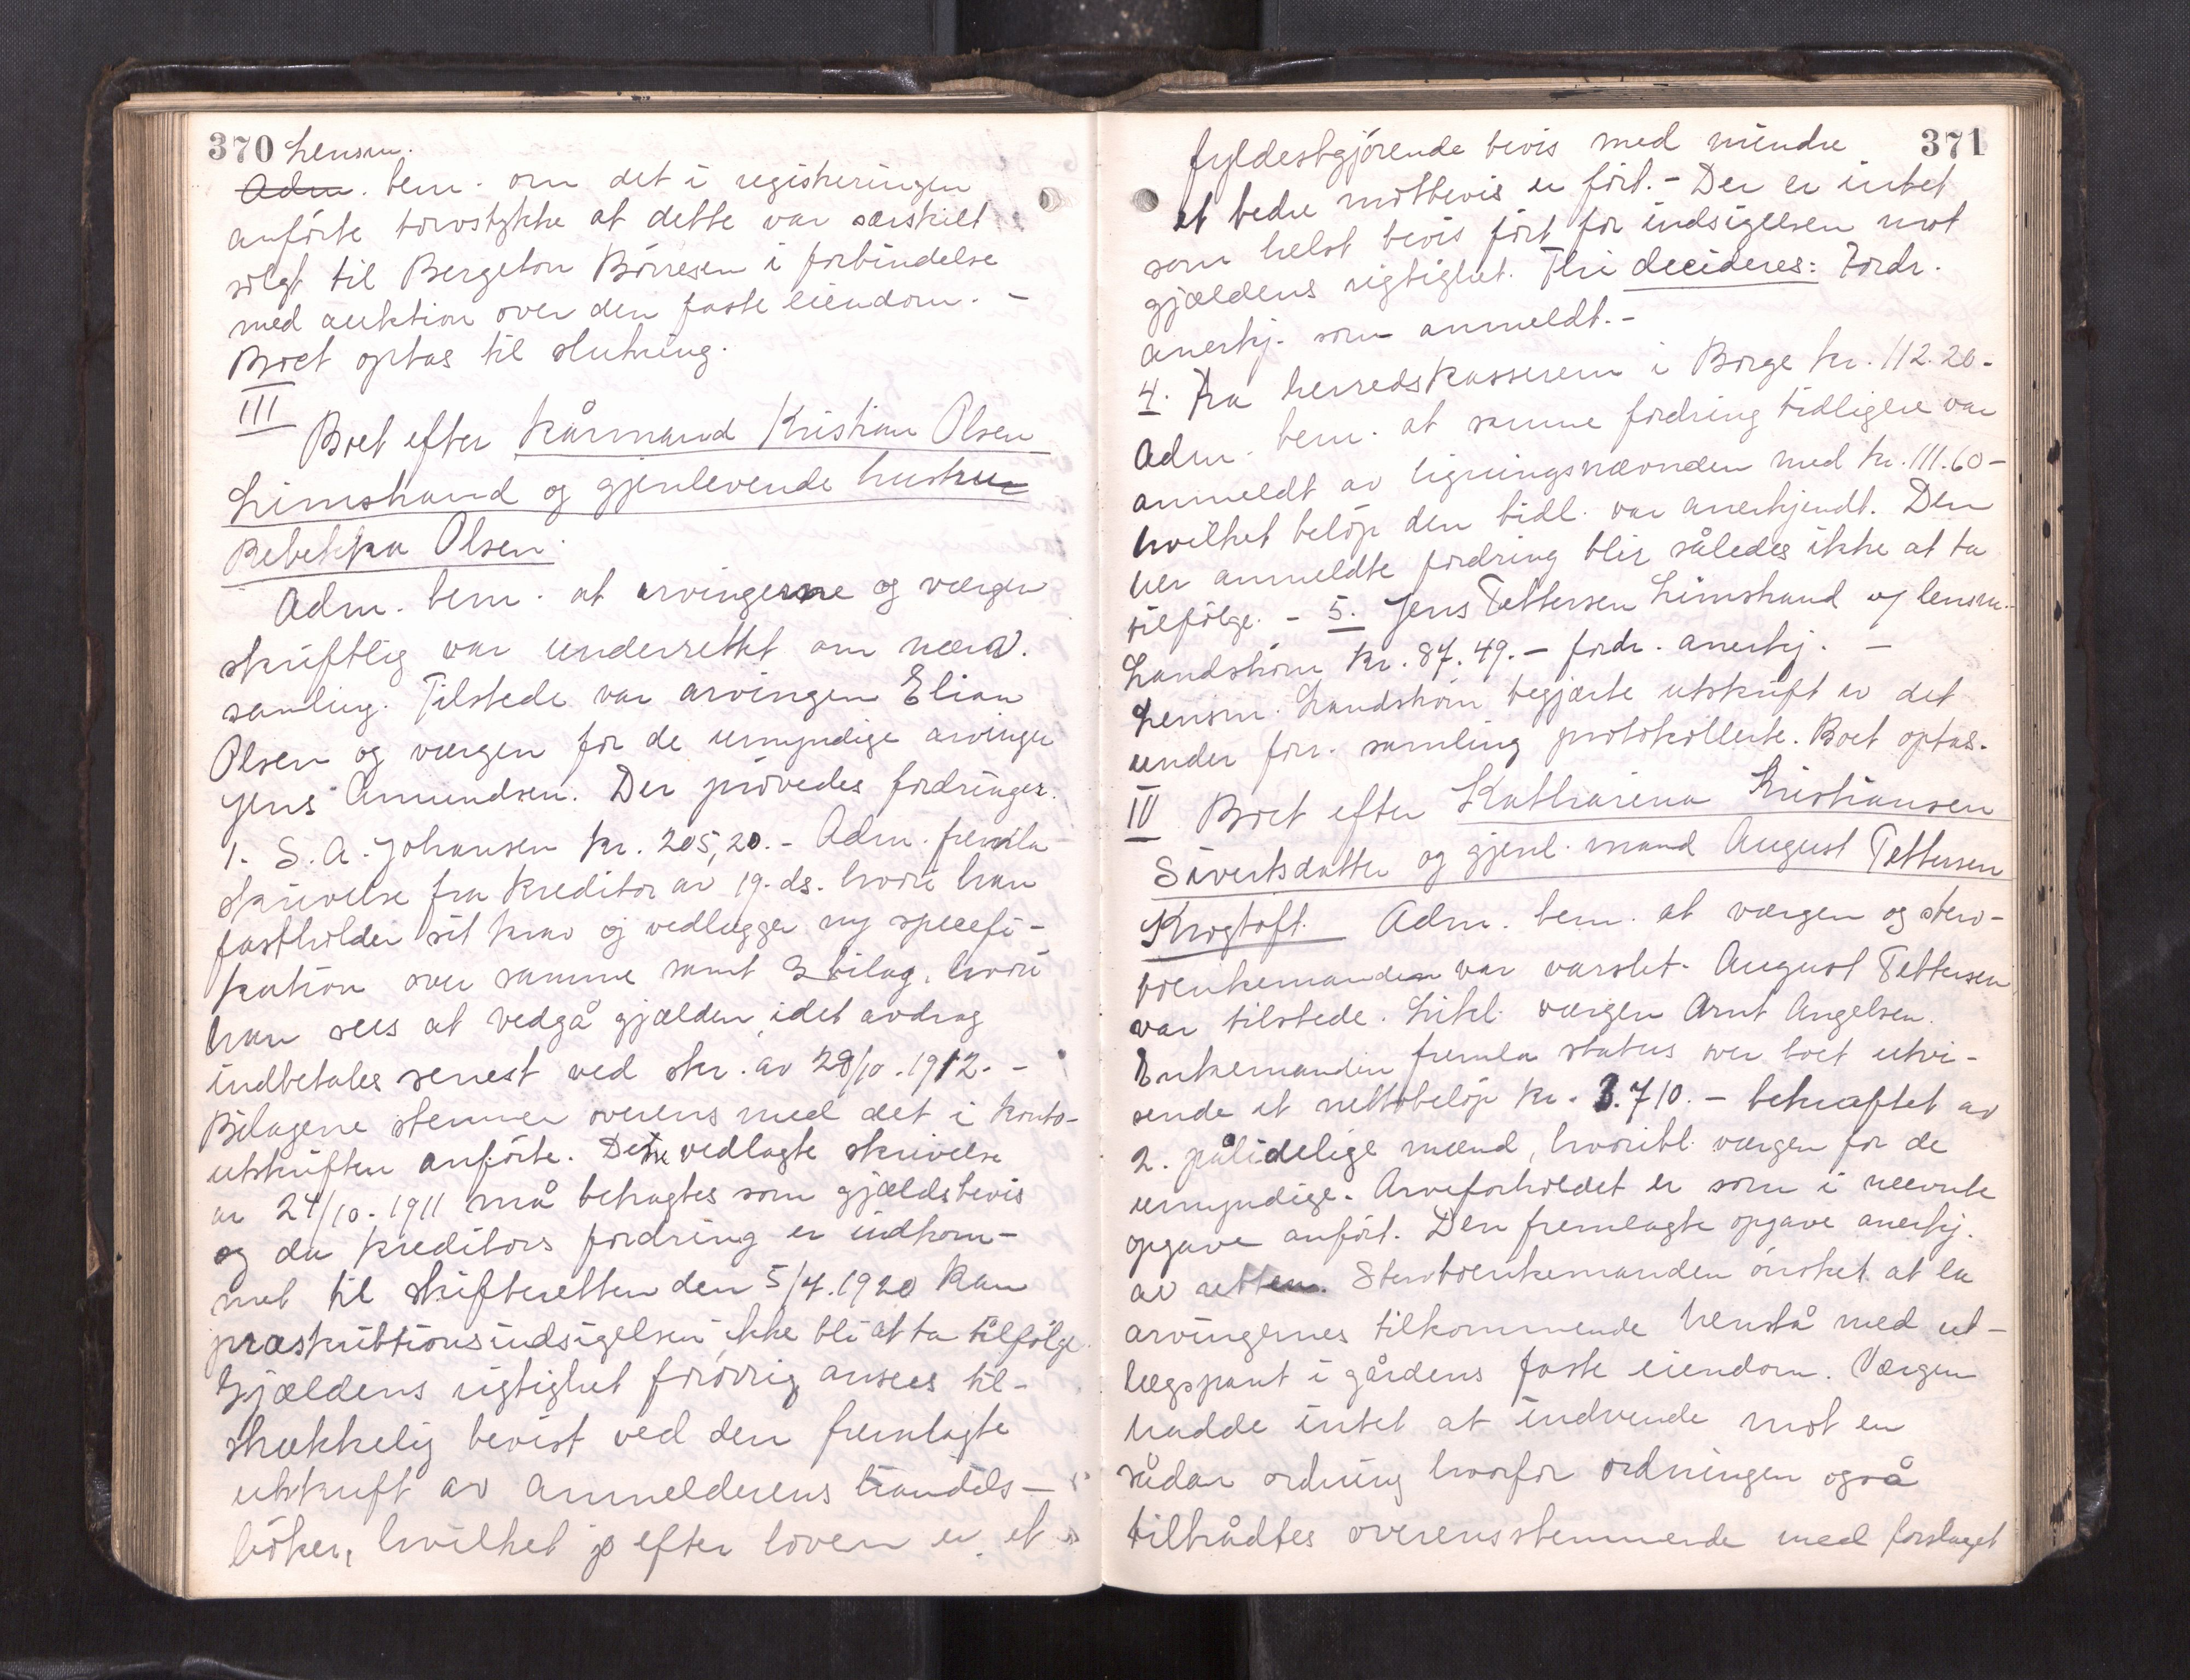 370 Lensm.
Adm. bem. om det i registreringen
anførte torvstykke at dette var særskilt
solgt til Bergeton Børresen i forbindelse
med auktion over den faste eiendom. -
Boet optas til slutning.
III
Boet efter kårmand Kristian Olsen
Limstrand og gjenlevende hustru
Rebekka Olsen.
Adm. bem. at arvingerne og værgen
skriftlig var underrettet om nærv.
samling. Tilstede var arvingen Elian
Olsen og værgen for de umyndige arvinger
Jens Amundsen. Der prøvedes fordringer.
1. S. A. Johansen kr. 205,20.- Adm. fremla
skrivelse fra kreditor av 19. ds. hvori han
fastholder sit krav og vedlægger ny specefi-
kation over samme samt 3 bilag, hvori
han sees at vedgå gjælden, idet avdrag
indbetales senest ved skr. av 28/10.1912. -
Bilagene stemmer overens med det i konto-
utskriften anførte. Den vedlagte skrivelse
av 24/10.1911 må betragtes som gjældsbevis
og da kreditors fordring er indkom-
met til skifteretten den 5/4.1920 kan
præskribtionsindsigelsen ikke bli at ta tilfølge.
Gjældens rigtighet forøvrig ansees til-
strækkelig bevist ved den fremlagte
utskrift av anmelderens handels-
bøker, hvilket jo efter loven er et
371
fyldestgjørende bevis med mindre
et bedre motbevis er ført. - Der er intet
som helst bevis ført for indsigelsen mot
gjældens rigtighet. Thi decideres: Fordr.
anerkj. som anmeldt. -
4. Fra herredskassereren i Borge kr. 112.20.
Adm. bem. at samme fordring tidligere var
anmeldt av ligningsnævnden med kr. 111.60 -
hvilket beløp den tidl. var anerkjendt. Den
her anmeldte fordring blir således ikke at ta
tilfølge. - 5. Jens Pettersen Limstrand og lensm.
Landstrøm kr. 87.49. - fordr. anerkj. -
Lensm. Landstrøm begjærte utskrift av det
under forr. samling protokollerte. Boet optas.
IV Boet efter Katharina Kristiansen
Sivertsdatter og gjenl. mand August Pettersen
Krogtoft. Adm. bem. at værgen og sterv-
boenkemanden var varslet. August Pettersen
var tilstede. Likel. værgen Arnt Angelsen.
Enkemanden fremla status over boet utvi-
sende et nettobeløp kr. 3.710. - bekræftet av
2. pålidelige mænd, hvoribl. værgen for de
umyndige. Arveforholdet er som i nævnte
opgave anført. Den fremlagte opgave anerkj.
av retten. Stervboenkemanden ønsket at la
arvingernes tilkommende henstå med ut-
lægspant i gårdens faste eiendom. Værgen
hadde intet at indvende mot en
sådan ordning hvorfor ordningen også
tiltrådtes overensstemmende med forslaget